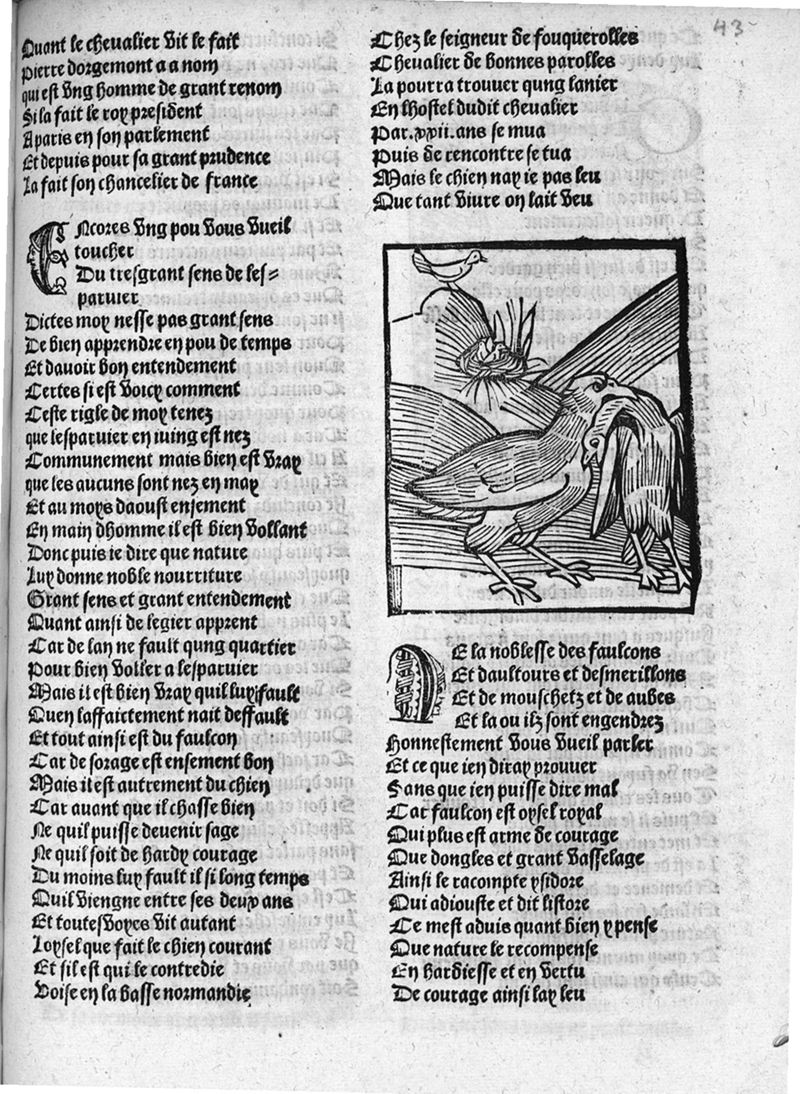 43
Quant le chevalier vit le fait
Pierre dorgemont a a nom
qui est vng homme de grant renom
Si la fait le roy president
A paris en son parlement
Et depuis pour sa grant prudence
La fait son chancelier de france
ENcores vng pou vous vueil
toucher
Du tresgrant sens de les⸗
paruier
Dictes moy nesse pas grant sens
De bien apprendre en pou de temps
Et dauoir bon entendement
Certes si est voicy comment
Ceste rigle de moy tenez
que lesparuier en iuing est nez
Communement mais bien est vray
que les aucuns sont nez en may
Et au moys daoust ensement
En main dhomme il est bien vollant
Donc puis ie dire que nature
Luy donne noble nourriture
Grant sens et grant entendement
Quant ainsi de legier apprent
Car de lan ne fault qung quartier
Pour bien voller a lesparuier
Mais il est bien vray quil luy fault
Quen laffaictement nait deffault
Et tout ainsi est du faulcon
Car de sorage est ensement bon
Mais il est autrement du chien
Car auant que il chasse bien
Ne quil puisse deuenir sage
Ne quil soit de hardy courage
Du moins luy fault il si long temps
Quil viengne entre ses deux ans
Et toutesvoyes vit autant
Loysel que fait le chien courant
Et sil est qui le contredie
Voise en la basse normandie
Chez le seigneur de fouquerolles
Chevalier de bonnes parolles
La pourra trouuer qung lanier
En lhostel dudit chevalier
Par .xxii. ans se mua
Puis de rencontre se tua
Mais le chien nay ie pas leu
Que tant viure on lait veu
DE la noblesse des faulcons
Et daultours et desmerillons
Et de mouschetz et de aubes
Et la ou ilz sont engendrez
Honnestement vous vueil parler
Et ce que ien diray prouuer
Sans que ien puisse dire mal
Car faulcon est oysel royal
Qui plus est arme de courage
Que dongles et grant vasselage
Ainsi le racompte ysidore
Qui adiouste et dit listore
Ce mest aduis quant bien y pense
Que nature le recompense
En hardiesse et en vertu
De courage ainsi lay leu